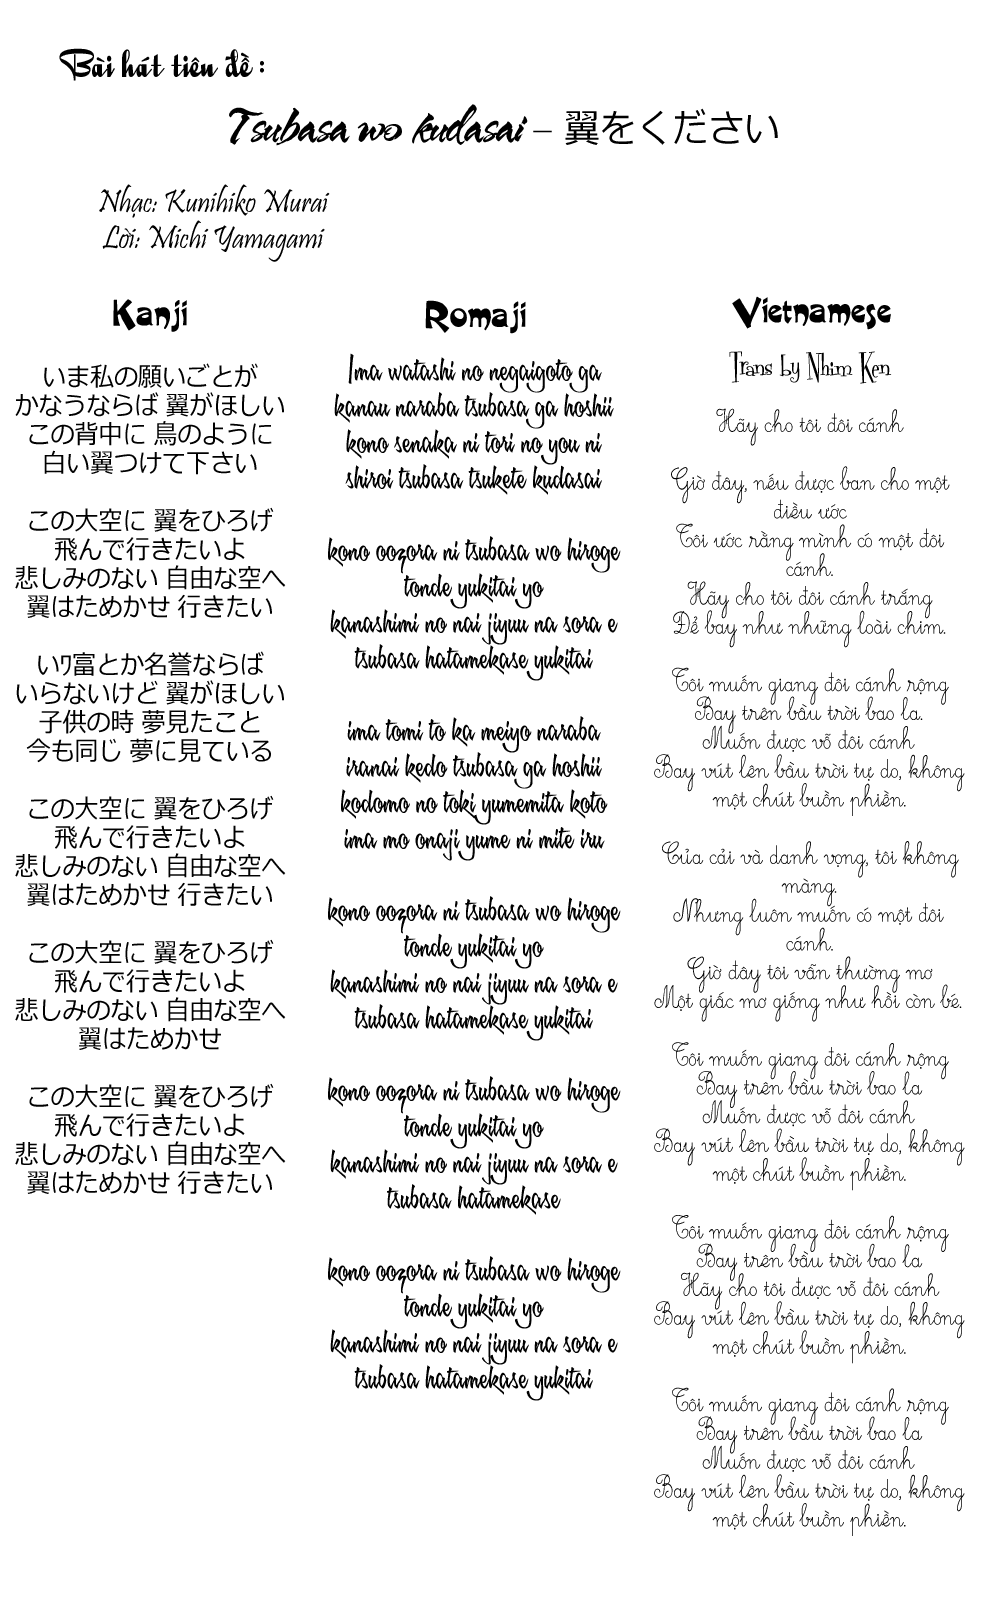 Bài hát tiêu đề :
Tsubasa wo kudasai – 翼をください
Nhạc: Kunihiko Murai
Lời: Michi Yamagami
Kanji
いま私の願いごとが
かなうならば 翼がほしい
この背中に 鳥のように
白い翼つけて下さい
この大空に 翼をひろげ
飛んで行きたいよ
悲しみのない 自由な空へ
翼はためかせ 行きたい
いﾜ富とか名誉ならば
いらないけど 翼がほしい
子供の時 夢見たこと
今も同じ 夢に見ている
この大空に 翼をひろげ
飛んで行きたいよ
悲しみのない 自由な空へ
翼はためかせ 行きたい
この大空に 翼をひろげ
飛んで行きたいよ
悲しみのない 自由な空へ
翼はためかせ
この大空に 翼をひろげ
飛んで行きたいよ
悲しみのない 自由な空へ
翼はためかせ 行きたい
Romaji
Ima watashi no negaigoto ga
kanau naraba tsubasa ga hoshii
kono senaka ni tori no you ni
shiroi tsubasa tsukete kudasai
kono oozora ni tsubasa wo hiroge
tonde yukitai yo
kanashimi no nai jiyuu na sora e
tsubasa hatamekase yukitai
ima tomi to ka meiyo naraba
iranai kedo tsubasa ga hoshii
kodomo no toki yumemita koto
ima mo onaji yume ni mite iru
kono oozora ni tsubasa wo hiroge
tonde yukitai yo
kanashimi no nai jiyuu na sora e
tsubasa hatamekase yukitai
kono oozora ni tsubasa wo hiroge
tonde yukitai yo
kanashimi no nai jiyuu na sora e
tsubasa hatamekase
kono oozora ni tsubasa wo hiroge
tonde yukitai yo
kanashimi no nai jiyuu na sora e
tsubasa hatamekase yukitai
Vietnamese
Trans by Nhim Ken
Hãy cho tôi đôi cánh
Giờ đây, nếu được ban cho một
điều ước
Tôi ước rằng mình có một đôi
cánh.
Hãy cho tôi đôi cánh trắng
Để bay như những loài chim.
Tôi muốn giang đôi cánh rộng
Bay trên bầu trời bao la.
Muốn được vỗ đôi cánh
Bay vút lên bầu trời tự do, không
một chút buồn phiền.
Của cải và danh vọng, tôi không
màng.
Nhưng luôn muốn có một đôi
cánh.
Giờ đây tôi vẫn thường mơ
Một giấc mơ giống như hồi còn bé.
Tôi muốn giang đôi cánh rộng
Bay trên bầu trời bao la
Muốn được vỗ đôi cánh
Bay vút lên bầu trời tự do, không
một chút buồn phiền.
Tôi muốn giang đôi cánh rộng
Bay trên bầu trời bao la
Hãy cho tôi được vỗ đôi cánh
Bay vút lên bầu trời tự do, không
một chút buồn phiền.
Tôi muốn giang đôi cánh rộng
Bay trên bầu trời bao la
Muốn được vỗ đôi cánh
Bay vút lên bầu trời tự do, không
một chút buồn phiền.